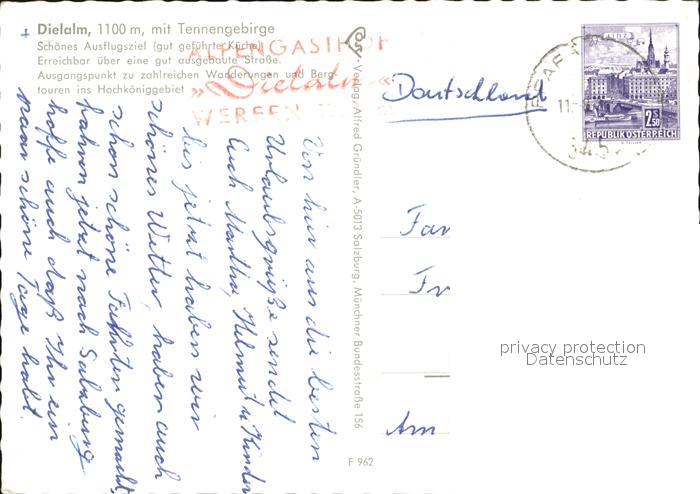 Dielalm, 1100 m, mit Tennengebirge
Schönes Ausflugsziel (gut geführte Küche)
Erreichbar über eine gut ausgebaute Straße.
Ausgangspunkt zu zahlreichen Wanderungen und Berg-
touren ins Hochköniggebiet
ALPENGASTHOF
»Dielalm«
WERFEN
Cosy-Verlag, Alfred Gründler, A-5013 Salzburg, Münchner Bundesstraße 156
F 962
Deutschland
LINZ
2.50
REPUBLIK ÖSTERREICH
11
Von hier aus die besten
Urlaubsgrüße sendet
Euch Martha, Helmut u. Kinder
bis jetzt haben wir
schönes Wetter, haben auch
schon schöne Fahrten gemacht,
fahren jetzt nach Salzburg
hoffe auch daß Ihr ein
paar schöne Tage habt.
Fa
F
Am
privacy protection
Datenschutz